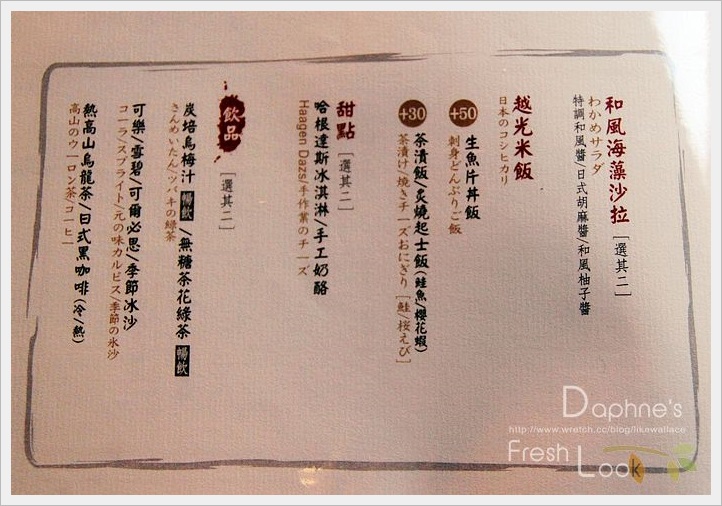 和風海藻沙拉［選其二］
わかめサラダ
特調和風醬/日式胡麻醬/和風柚子醬
越光米飯
日本のコシヒカリ
+50 生魚片丼飯
刺身どんぶりご飯
+30 茶漬飯/炙燒起士飯(鮭魚/櫻花蝦)
茶漬け/焼きチーズおにぎり［鮭/桜えび］
甜點［選其二］
哈根達斯冰淇淋/手工奶酪
Haagen Dazs/手作業のチーズ
飲品［選其二］
炭培烏梅汁 暢飲/無糖茶花綠茶 暢飲
さんめいたん/ツバキの緑茶
可樂/雪碧/可爾必思/季節冰沙
コーラ/スプライト/元の味カルビス/季節の氷沙
熱高山烏龍茶/日式黑咖啡(冷/熱)
高山のウーロン茶/コーヒー
Daphne's
http://www.wretch.cc/blog/likewallace
Fresh Look